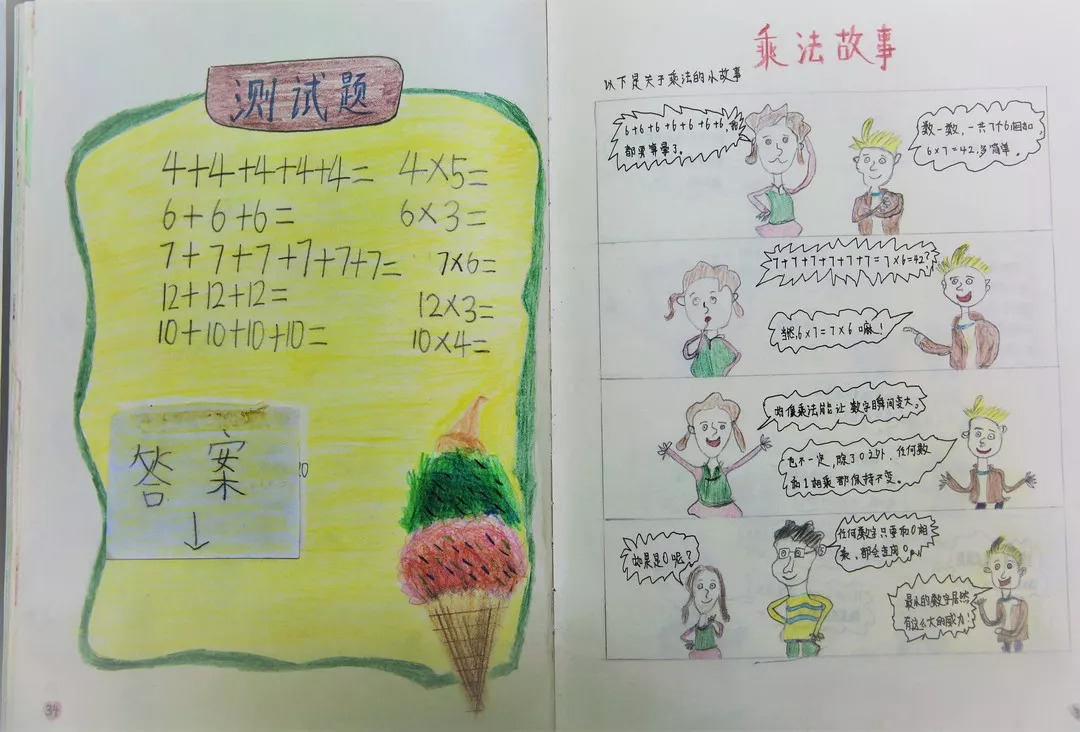 测试题
4+4+4+4+4= 4×5=
6+6+6= 6×3=
7+7+7+7+7+7= 7×6=
12+12+12= 12×3=
10+10+10+10= 10×4=
答案
↓
34
乘法故事
以下是关于乘法的小故事
6+6+6+6+6+6+6,
都要算晕了。
数一数,一共7个6相加,
6×7=42,多简单。
7+7+7+7+7+7=7×6=42?
当然,6×7=7×6嘛!
乘法能让数字瞬间变大。
也不一定,除了0之外,任何数
和1相乘都保持不变。
如果是0呢?
任何数字只要和0相
乘,都会变成0。
最小的数字居然
有这么大的威力!